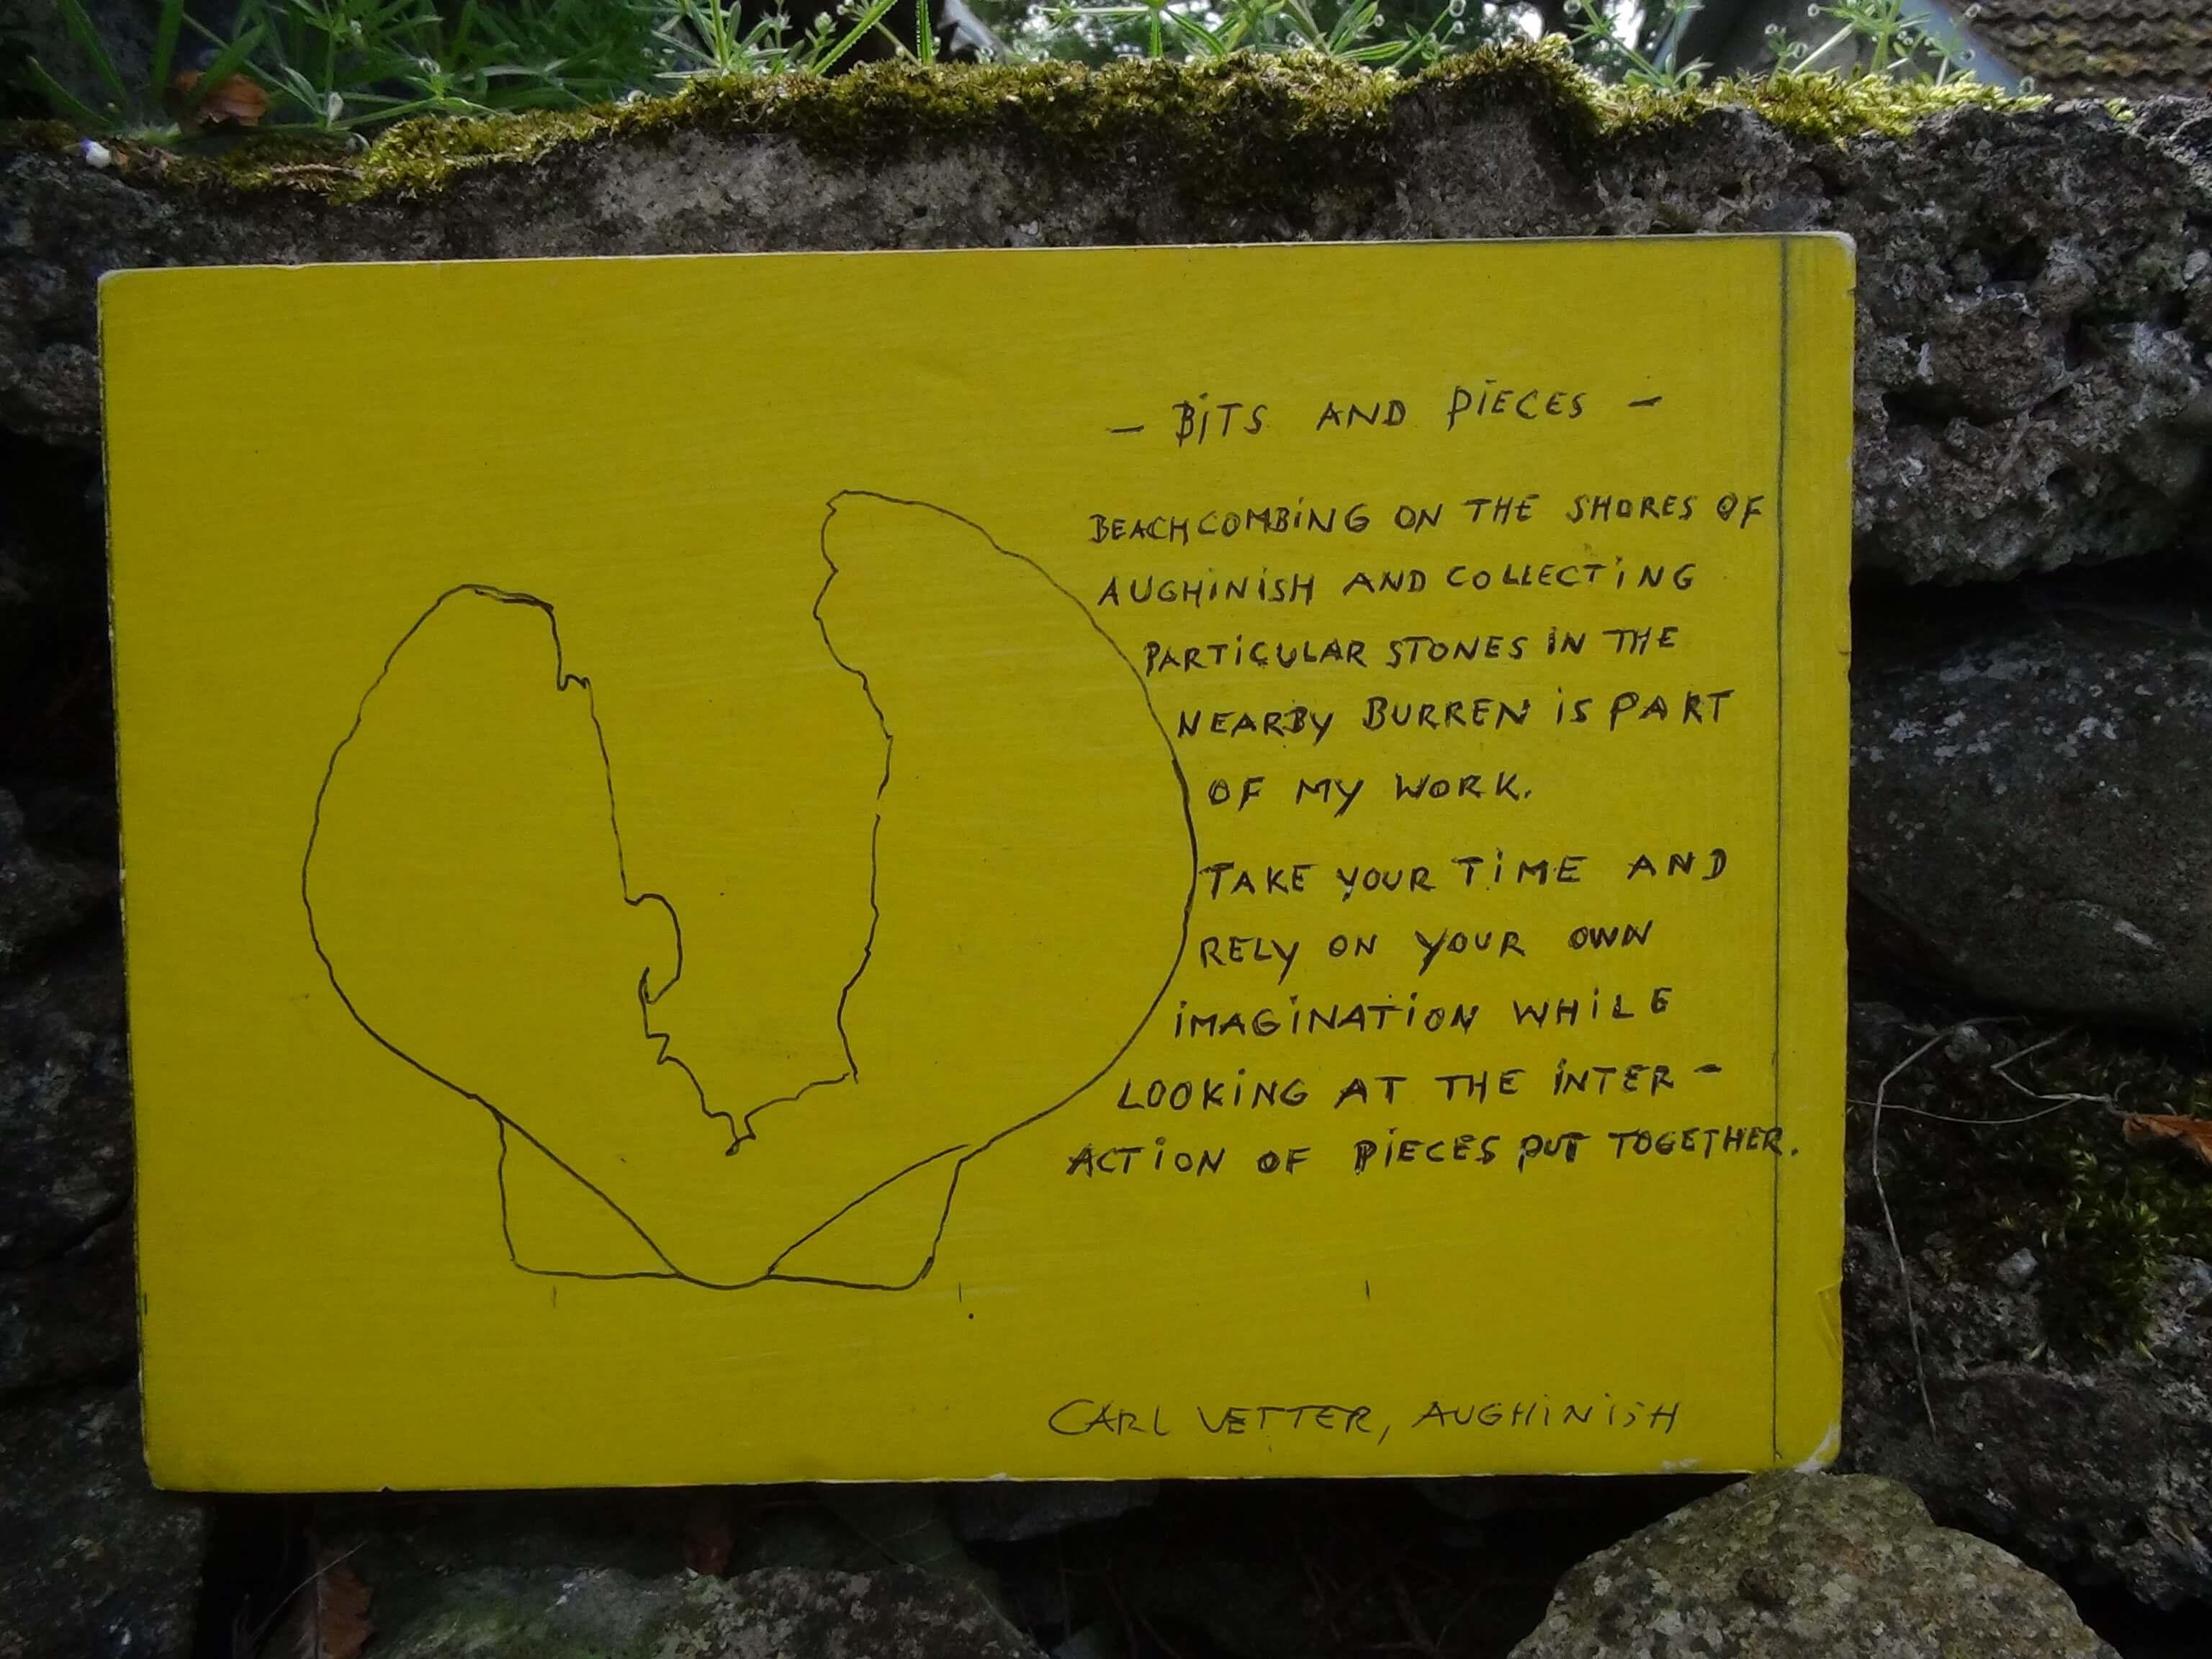 - BiTS AND PiECES -
BEACHCOMBiNG ON THE SHORES OF
AUGHiNiSH AND COLLECTiNG
PARTiCULAR STONES iN THE
NEARBY BURREN iS PART
OF MY WORK.
TAKE YOUR TiME AND
RELY ON YOUR OWN
iMAGiNATiON WHiLE
LOOKiNG AT THE iNTER -
ACTiON OF PiECES PUT TOGETHER.
CARL VETTER, AUGHiNiSH